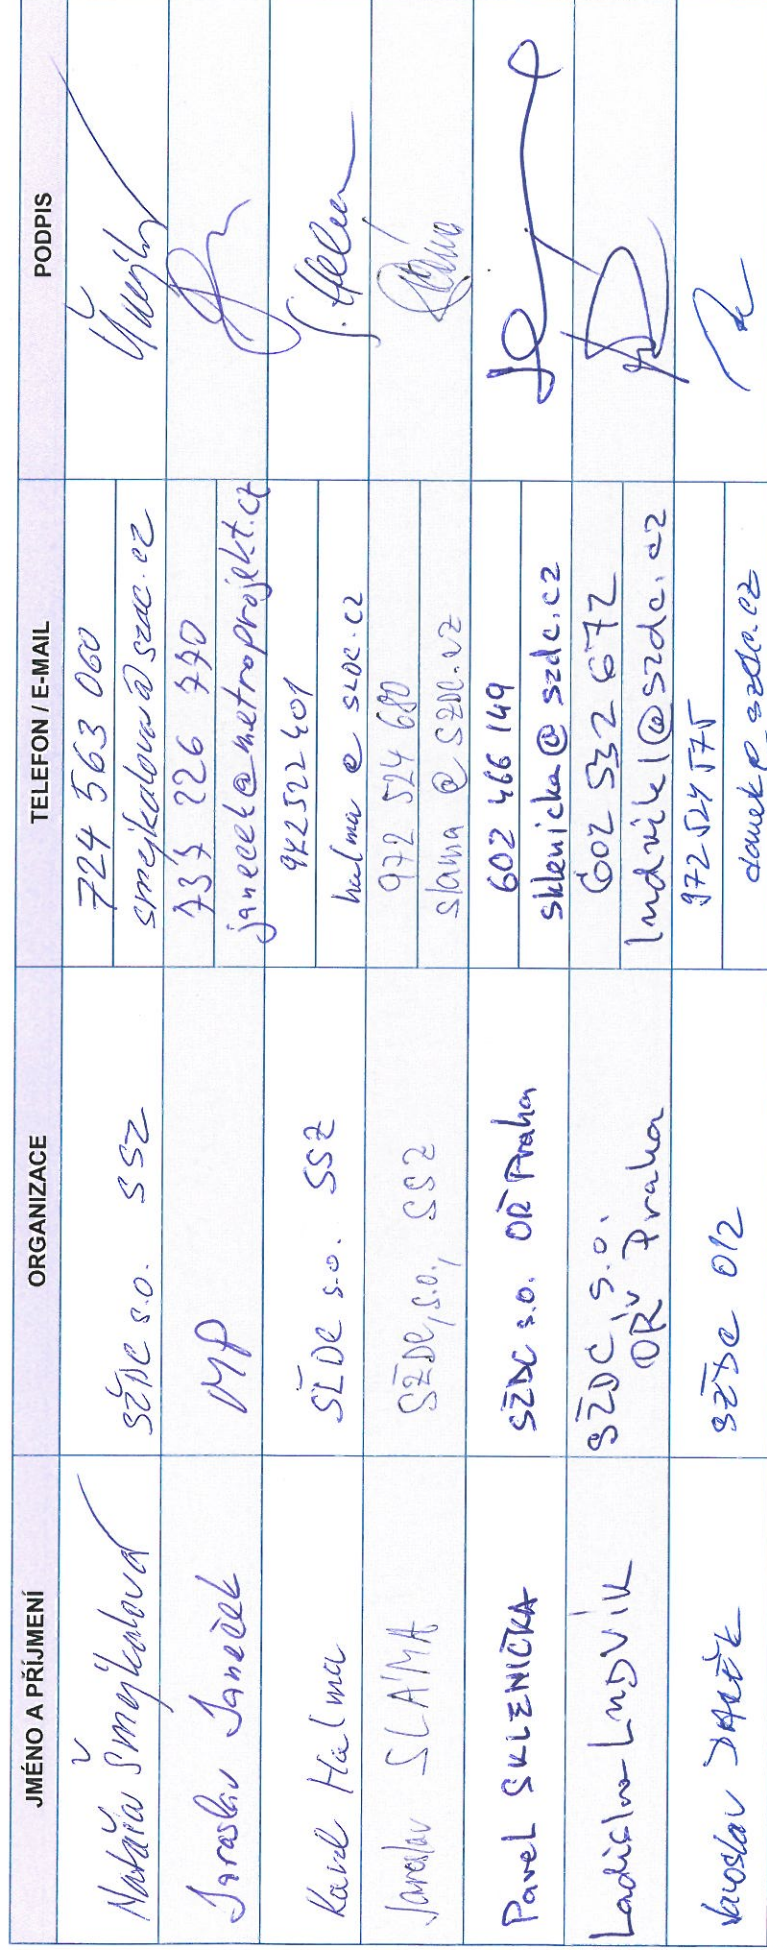 JMÉNO A PŘÍJMENÍ ORGANIZACE TELEFON / E-MAIL PODPIS
Nataša Smejkalová SŽDC s.o. SSZ 724 563 060
smejkalova@szdc.cz
Jaroslav Janeček MP 737 226 770
janecek@metroprojekt.cz
Karel Halma SŽDC s.o. SSZ 972522401
halma@szdc.cz
Jaroslav SLÁMA SŽDC, s.o., SSZ 972 524 680
slama@szdc.cz
Pavel SKLENIČKA SŽDC s.o. OŘ Praha 602 466 149
sklenicka@szdc.cz
Ladislav LUDVÍK SŽDC, s.o. 602 532 672
OŘ Praha ludvikl@szdc.cz
Jaroslav DANĚK SŽDC 972 524 575
danekp szdc.cz